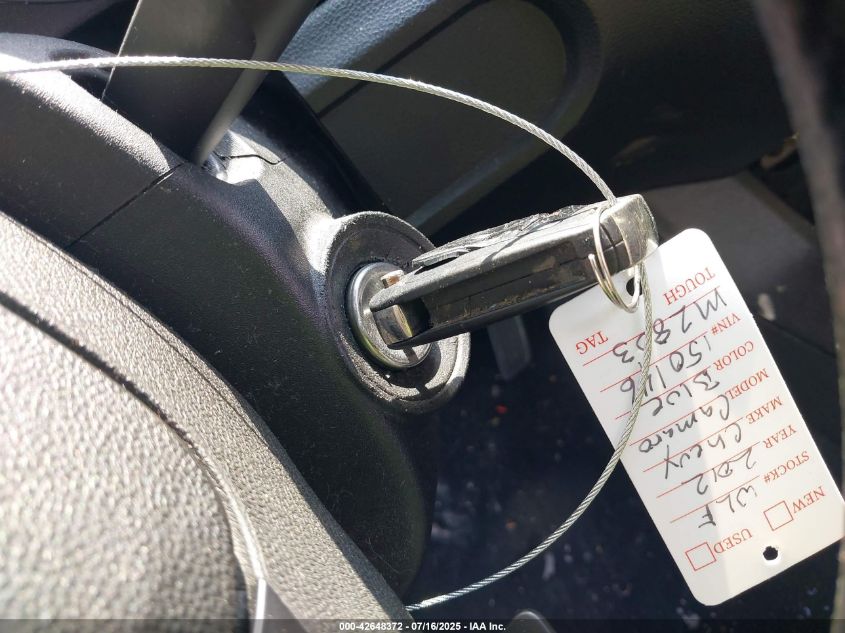 NEW USED
STOCK# WLF
YEAR 2012
MAKE Chevy
MODEL Camaro
COLOR Blue
VIN# 150146
M2833
TOUGH TAG
000-42648372 - 07/16/2025 - IAA Inc.